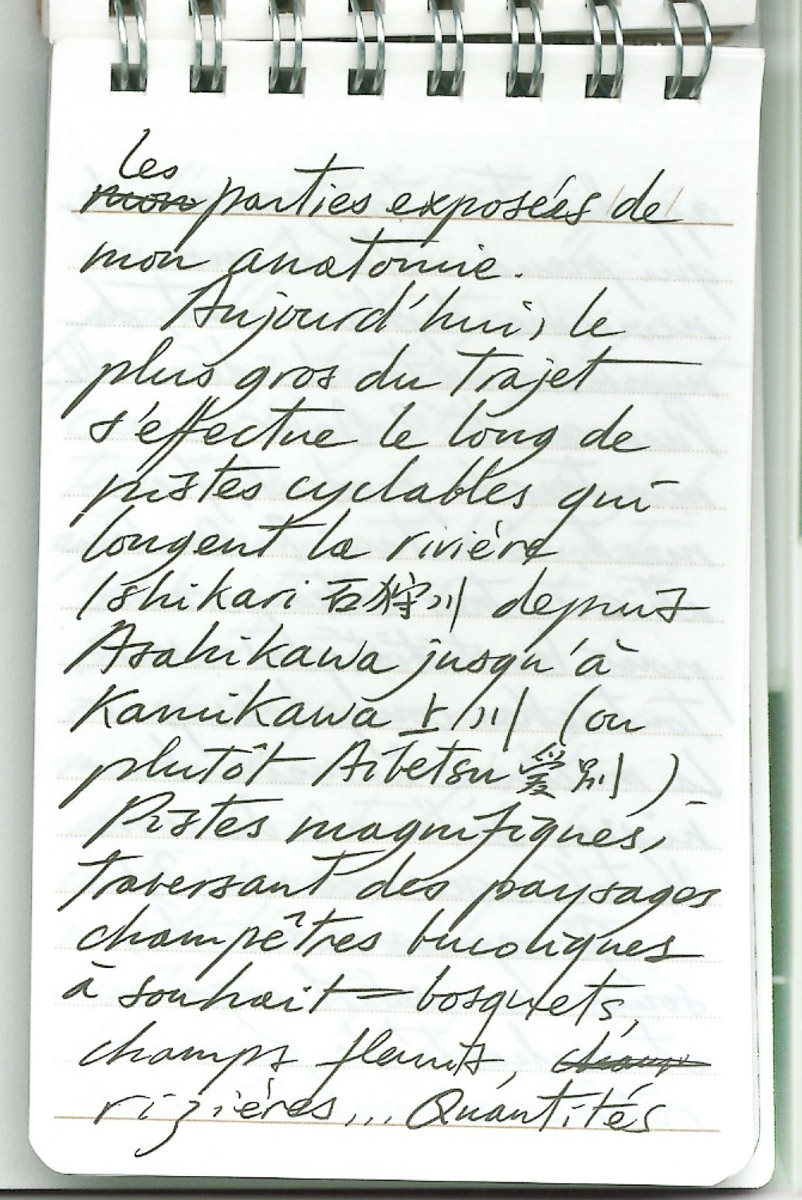 les
mon parties exposées de
mon anatomie.
Aujourd'hui, le
plus gros du trajet
s'effectue le long de
pistes cyclables qui
longent la rivière
Ishikari 石狩川 depuis
Asahikawa jusqu'à
Kamikawa 上川 (ou
plutôt Aibetsu 愛別).
Pistes magnifiques,
traversant des paysages
champêtres bucoliques
à souhait – bosquets,
champs fleuris, champs
rizières... Quantités